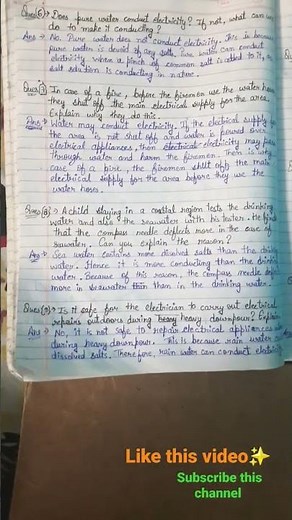 Ques(6)→ Does pure water conduct electricity? If not, what can we
do to make it conducting?
Ans → No. Pure water does not conduct electricity. This is because
pure water is devoid of any salts. Pure water can conduct
electricity when a pinch of common salt is added to it, as
salt solution is conducting in nature.
Ques(7) In case of a fire, before the firemen use the water hoses,
they shut off the main electrical supply for the area.
Explain why they do this.
Ans → Water may conduct electricity. If the electrical supply for
the area is not shut off and water is poured over
electrical appliances, then electricity may pass
through water and harm the firemen. This is why
case of a fire, the firemen shut off the main
electrical supply for the area before they use the
water hoses.
Ques(8)→ A child staying in a coastal region tests the drinking
water and also the seawater with his tester. He finds
that the compass needle deflects more in the case of
seawater. Can you explain the reason?
Ans → Sea water contains more dissolved salts than the drinking
water. Hence it is more conducting than the drinking
water. Because of this reason, the compass needle deflects
more in seawater than in the drinking water.
Ques(9)→ Is it safe for the electrician to carry out electrical
repairs outdoors during heavy heavy downpour? Explain
Ans → No, it is not safe to repair electrical appliances
during heavy downpour. This is because rain water
dissolved salts. Therefore, rain water can conduct electricity
Like this video✨
Subscribe this
channel